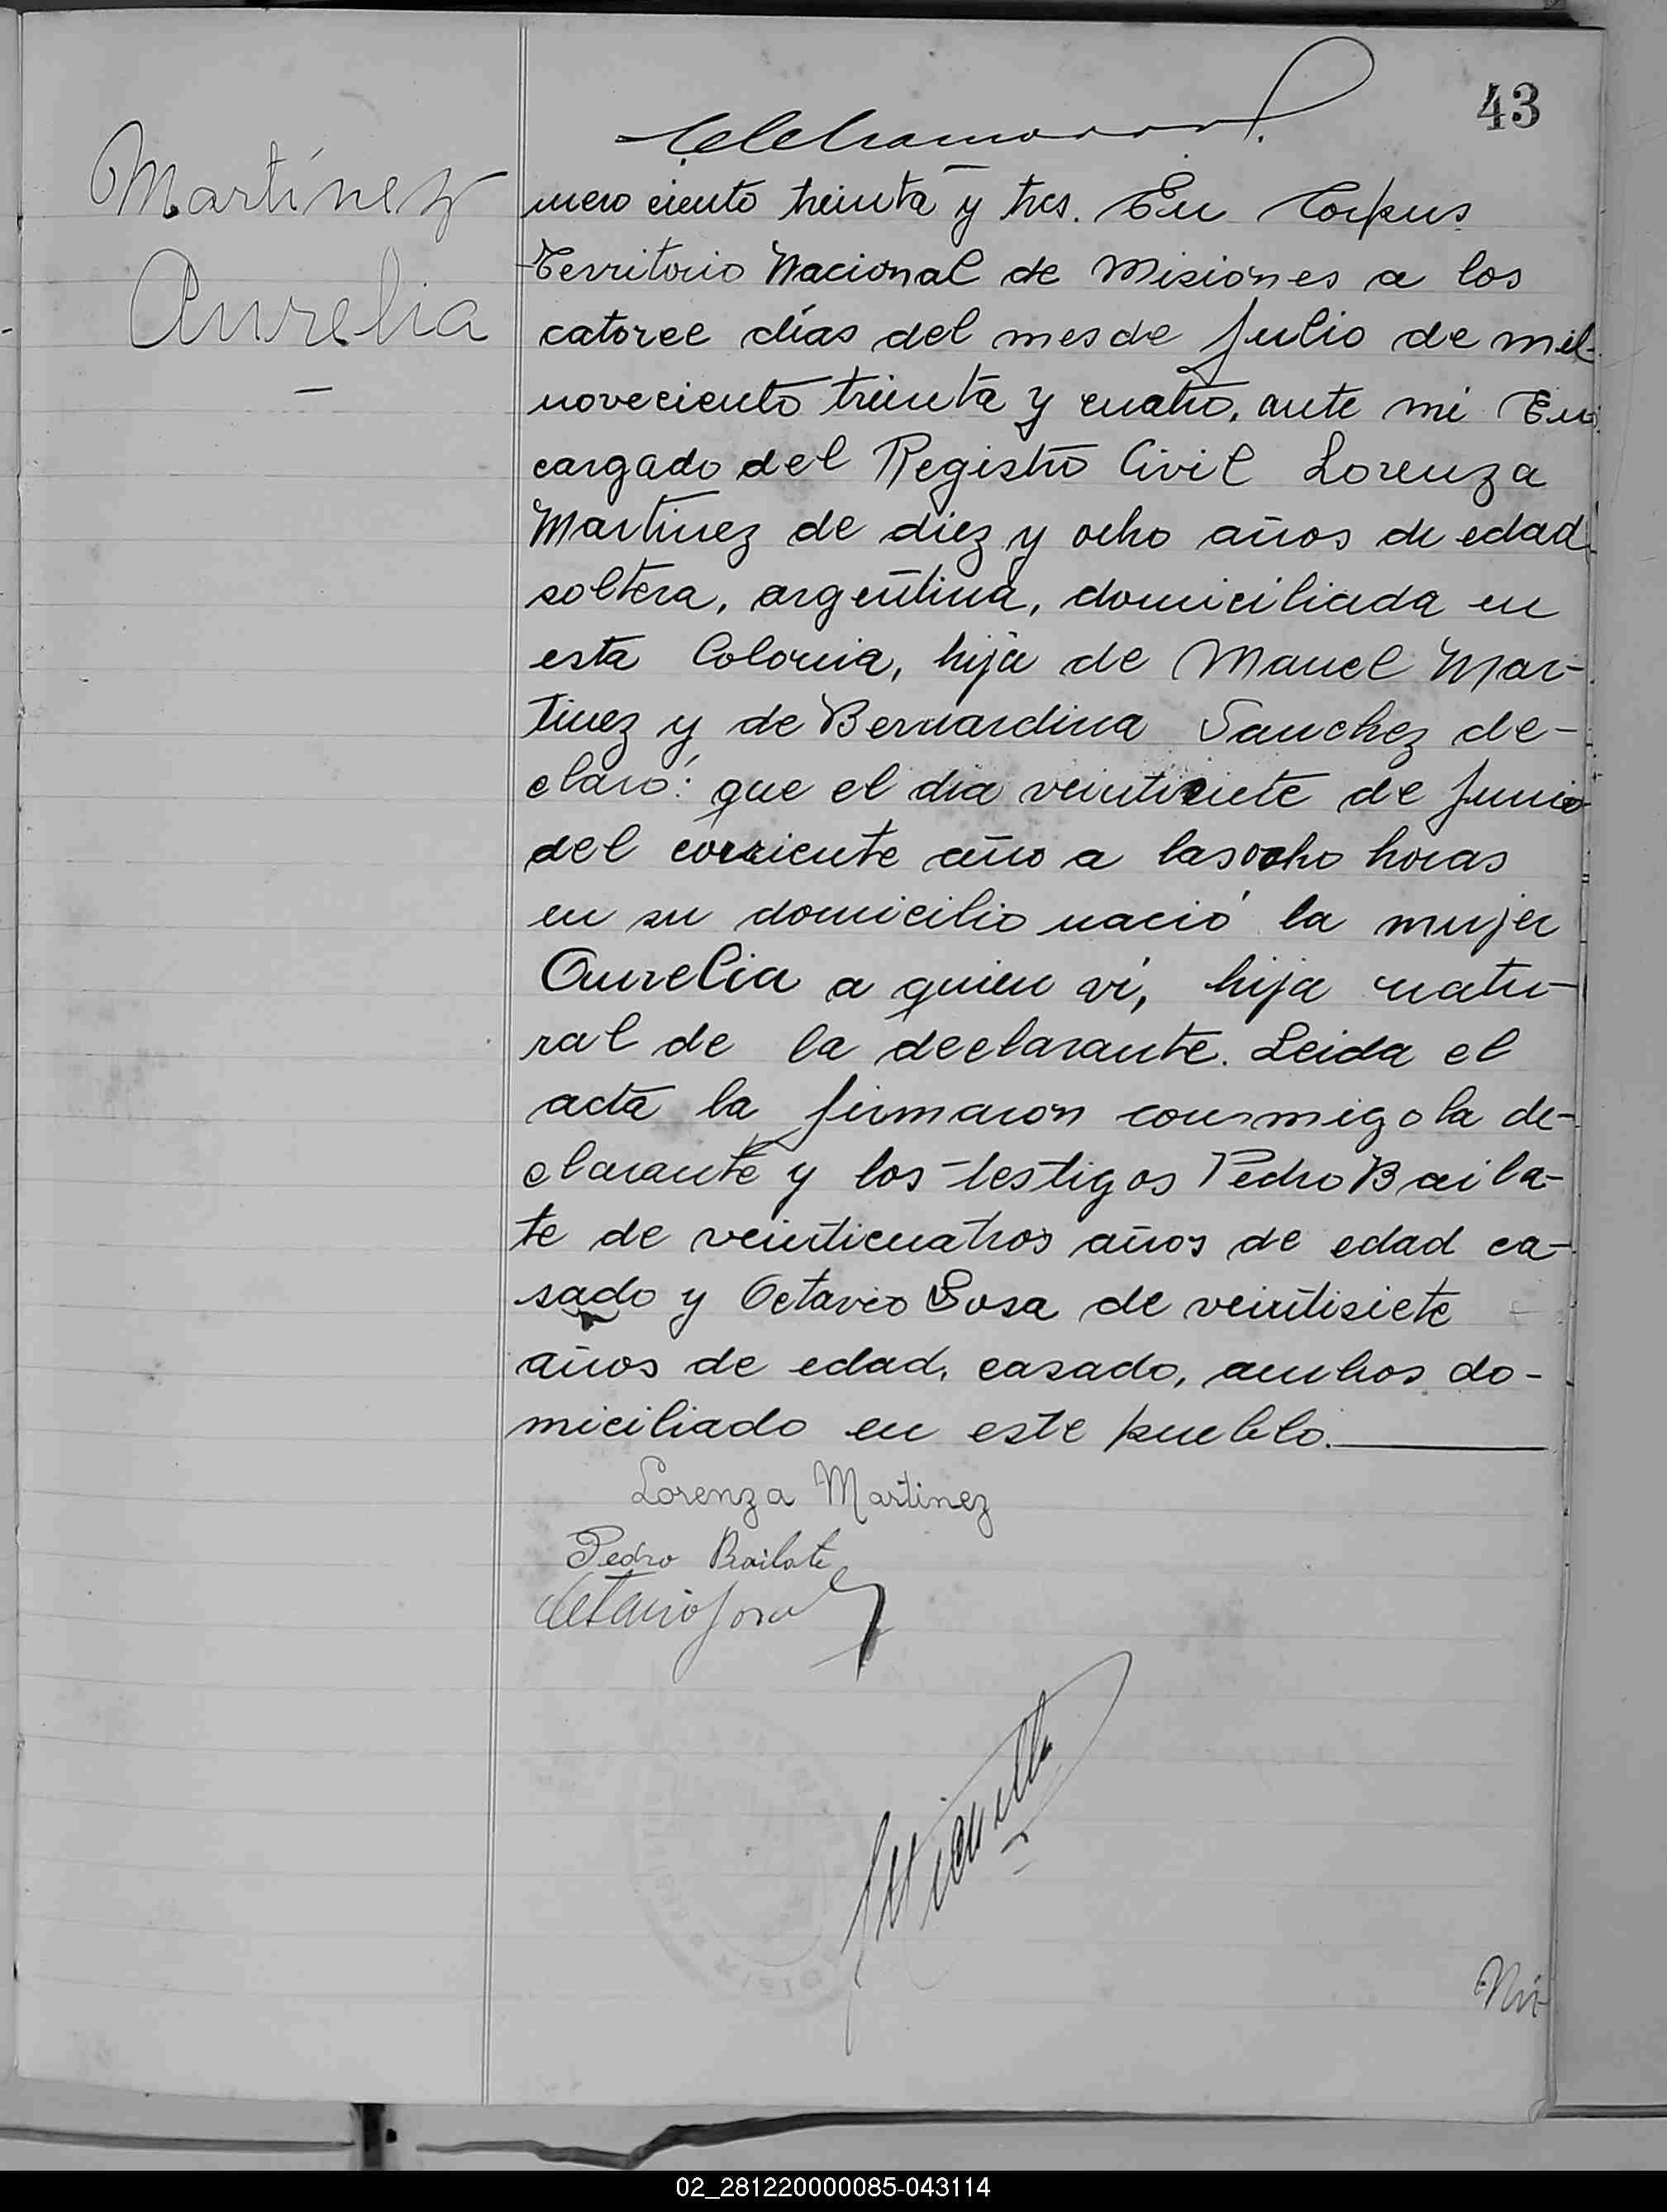 43
Martínez
Aurelia
mero ciento treinta y tres. En Corpus
Territorio Nacional de Misiones a los
catorce días del mes de Julio de mil
noveciento treinta y cuatro, ante mi En
cargado del Registro Civil Lorenza
Martinez de diez y ocho años de edad
soltera, argentina, domiciliada en
esta Colonia, hija de Manuel Mar-
tinez y de Bernardina Sanchez de-
claró: que el dia veintisiete de Junio
del corriente año a las ocho horas
en su domicilio nació la mujer
Aurelia a quien ví, hija natu-
ral de la declarante. Leida el
acta la firmaron conmigo la de-
clarante y los testigos Pedro Baila-
te de veinticuatros años de edad ca-
sado y Octavio Sosa de veintisiete
años de edad, casado, ambos do-
miciliado en este pueblo.
Lorenza Martinez
Pedro Bailate
Octavio Sosa
Nú-
02_281220000085-043114